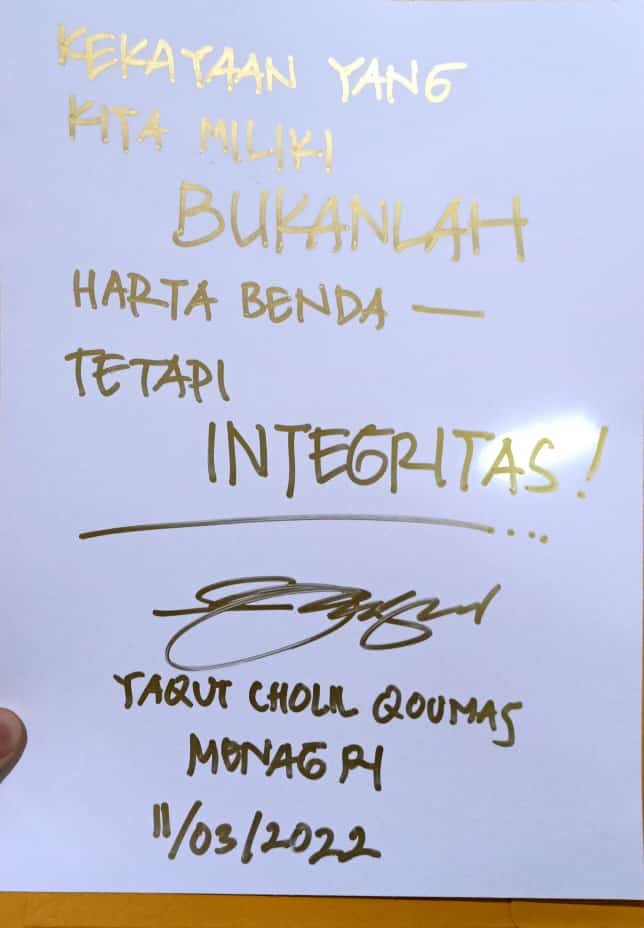 KEKAYAAN YANG
KITA MILIKI
BUKANLAH
HARTA BENDA —
TETAPI
INTEGRITAS!
YAQUT CHOLIL QOUMAS
MENAG RI
11/03/2022